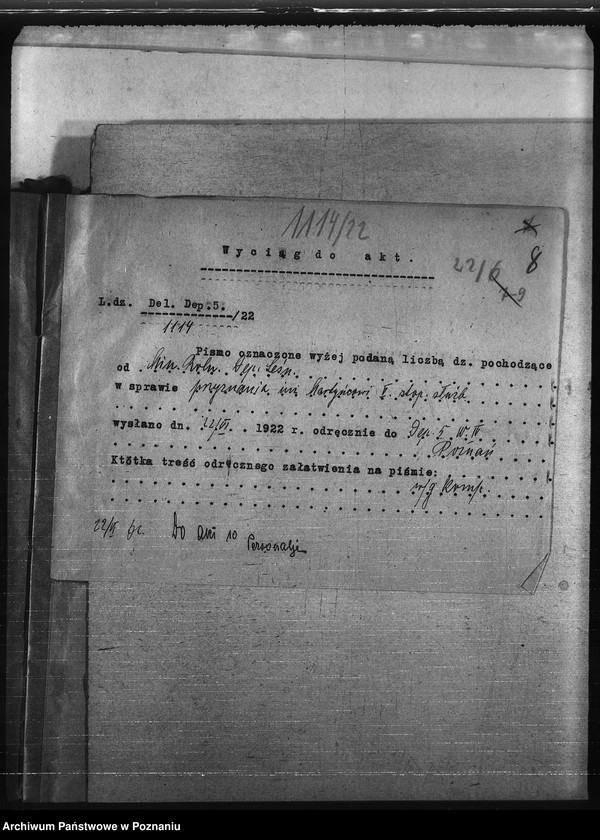 1114/22
8
Wyciąg do akt.
22/6
L.dz. Del. Dep.5.
1114 /22
Pismo oznaczone wyżej podaną liczbą dz. pochodzące
od Min. Roln. Dep. Leśn.
w sprawie przyznania inż. V. stop. służb.
wysłano dn. 22/VI. 1922 r. odręcznie do Dep. 5 W. IV
Poznań
Któtka treść odręcznego załatwienia na piśmie:
w/g komp.
22/6 Do akt
Personalji
Archiwum Państwowe w Poznaniu